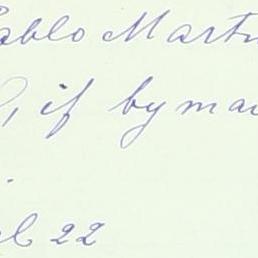 Pablo Martin
, if by mai
.
22